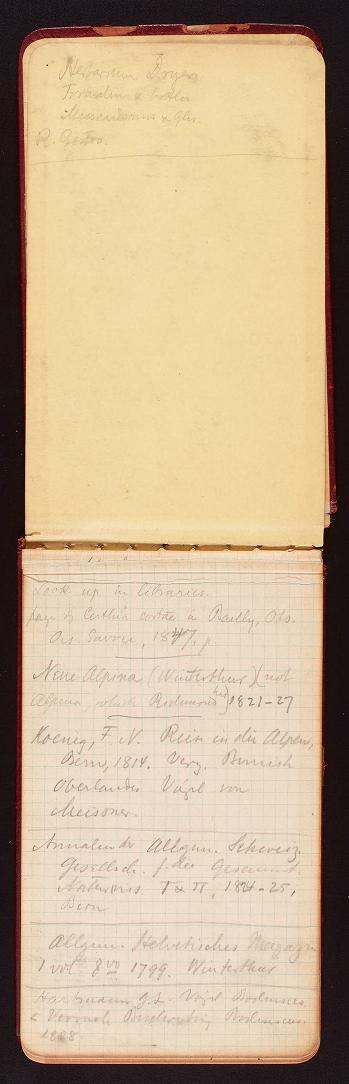 Herbarium Dryer
R.
Look up in libraries.
page of Certhia costae in Bailly, Obs.
Ois Savoie, 1847, p
Neue Alpina (Winterthur) (not
Alpina, which Richmond has) 1821-27
Koenig, F. N. Reise in die Alpen,
Bern, 1814. Verz. Bernisch
Oberlandes Vögel von
Meissner.
Annalen der Allgem. Schweiz.
Gesellsch. f. die Gesammt.
Naturwiss. I & II, 1824-25,
Bern
Allgem. Helvetisches Magazin
1 vol. 8vo 1799. Winterthur
Hartmann, Vögel Bodensees
& Versuch Beschreibung Bodensees